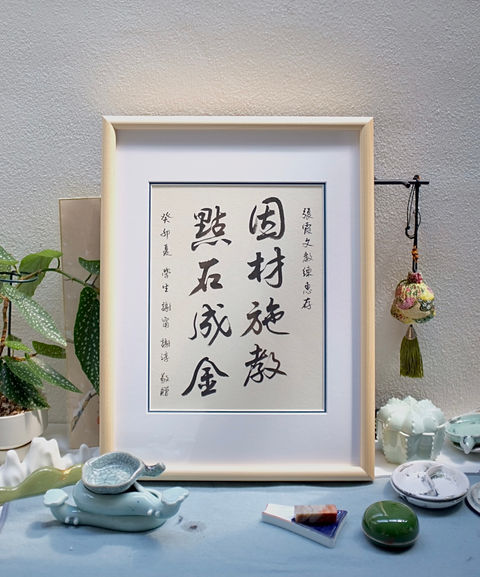 張霞文教練惠存
因材施教
點石成金
癸卯夏 學生 謝甯 謝淳 敬贈